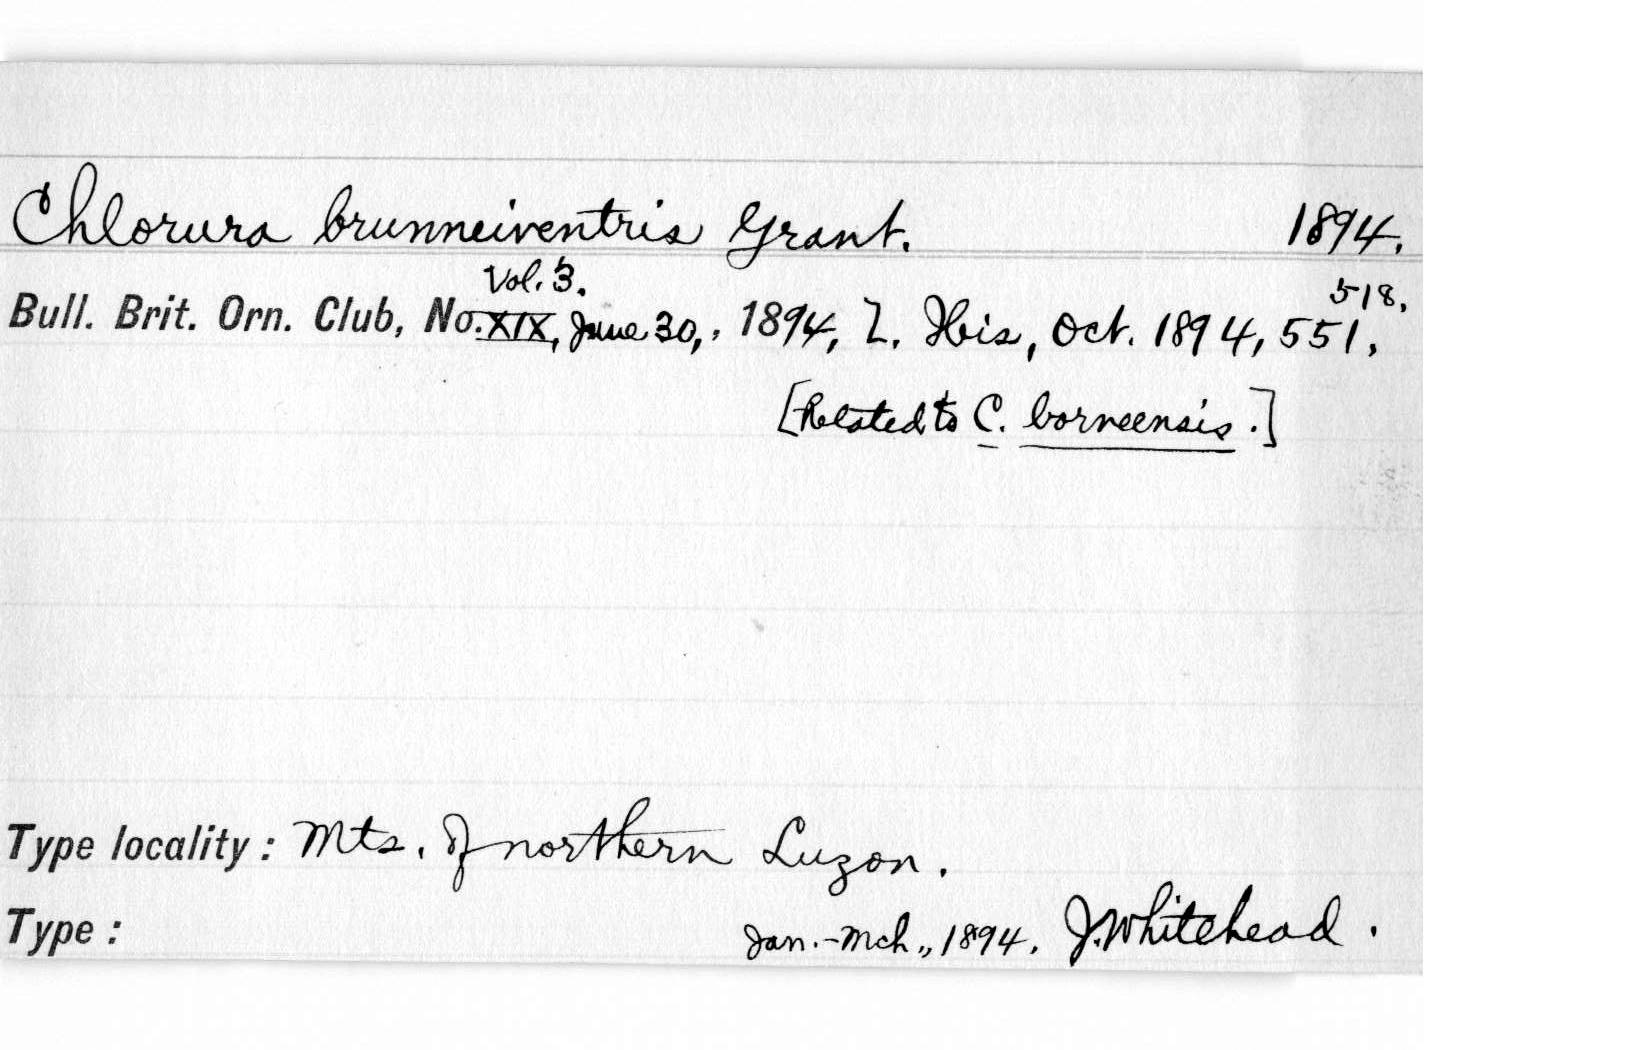 Chlorura brunneiventris Grant. 1894.
Vol. 3. 518.
Bull. Brit. Orn. Club, No. XIX, June 30, , 1894, L. Ibis, Oct. 1894, 551,
[Related to C. borneensis.]
Type locality: Mts. of northern Luzon.
Type: Jan.-Mch., 1894. J. Whitehead.